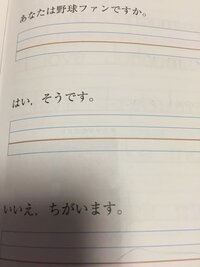 あなたは野球ファンですか。
はい，そうです。
いいえ，ちがいます。